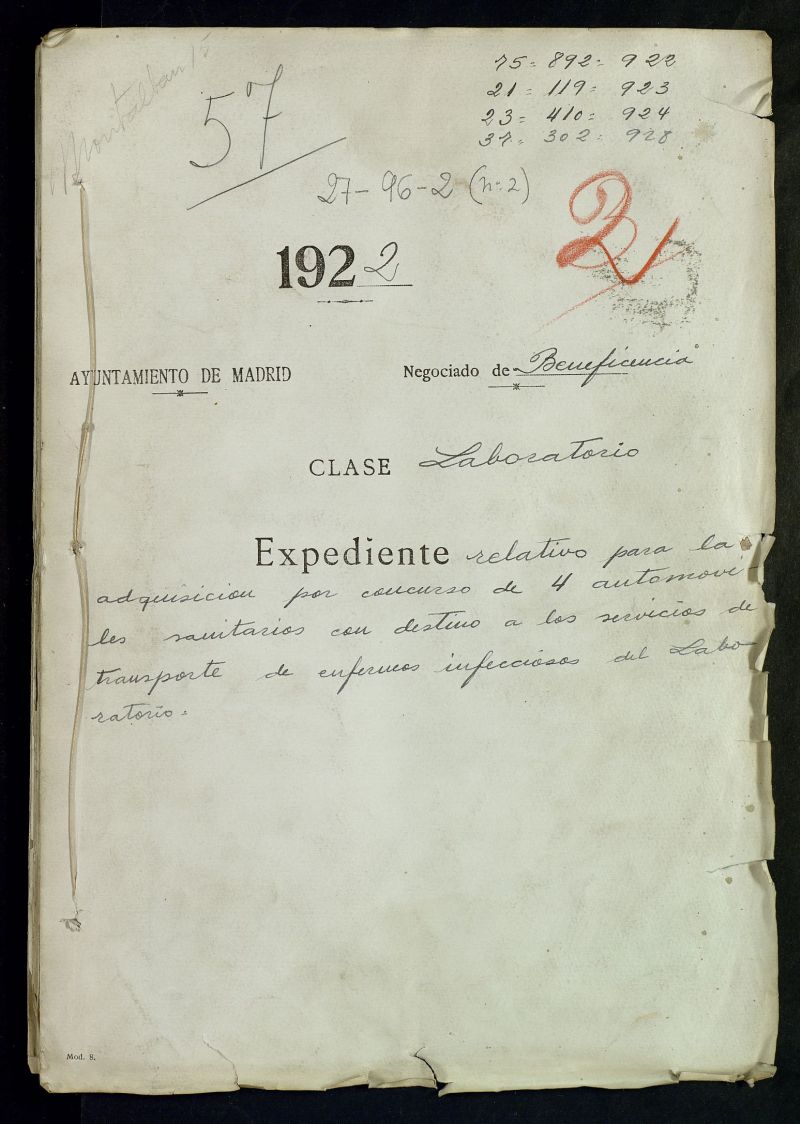 Montalban 15
57
75 = 892 = 922
21 = 119 = 923
23 = 410 = 924
37 = 302 = 928
27-96-2 (nº 2)
2
1922
AYUNTAMIENTO DE MADRID
Negociado de Beneficencia
CLASE Laboratorio
Expediente relativo para la
adquisicion por concurso de 4 automovi-
les sanitarios con destino a los servicios de
transporte de enfermos infecciosos del Labo-
ratorio=
Mod. 8.